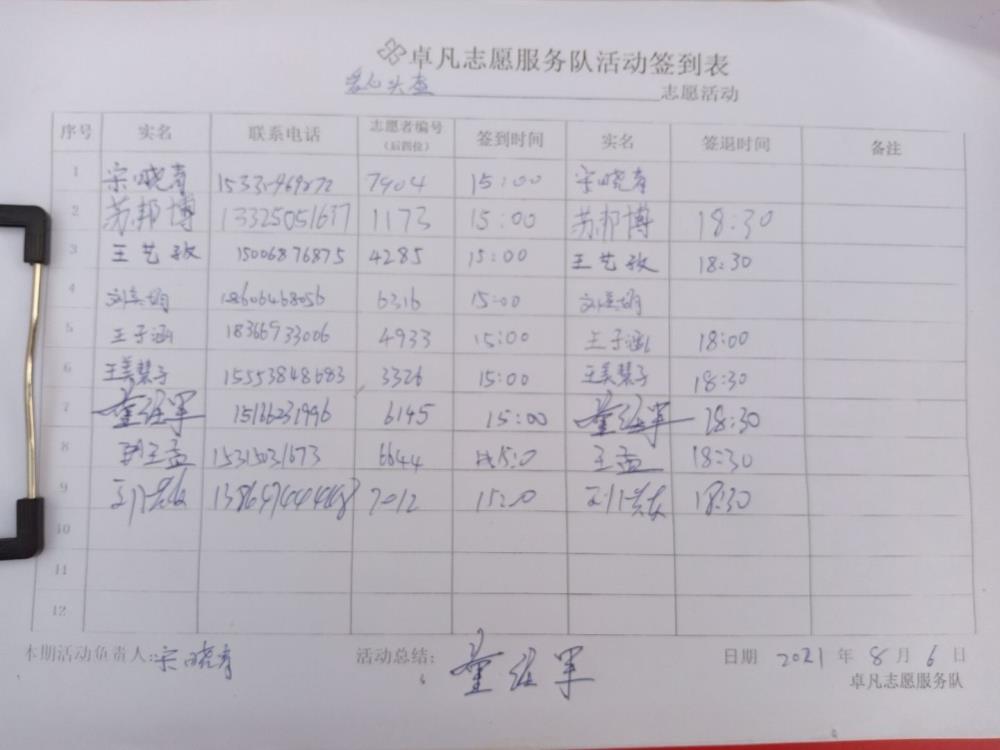 卓凡志愿服务队活动签到表
爱心头盔 志愿活动
序号 实名 联系电话 志愿者编号（后四位） 签到时间 实名 签退时间 备注
1 宋晓青 7904 15:00 宋晓青
2 苏邦博 13325051637 1173 15:00 苏邦博 18:30
3 王艺孜 15006876875 4285 15:00 王艺孜 18:30
4 18606468056 6316 15:00
5 王子涵 18366933006 4933 15:00 王子涵 18:00
6 王美慧子 15553848683 3326 15:00 王美慧子 18:30
7 董维军 15166231996 6145 15:00 董维军 18:30
8 王孟 15315031673 6644 王孟 18:30
9 7012 18:30
10
11
12
本期活动负责人:宋晓青 活动总结: 董维军 日期 2021 年 8 月 6 日
卓凡志愿服务队